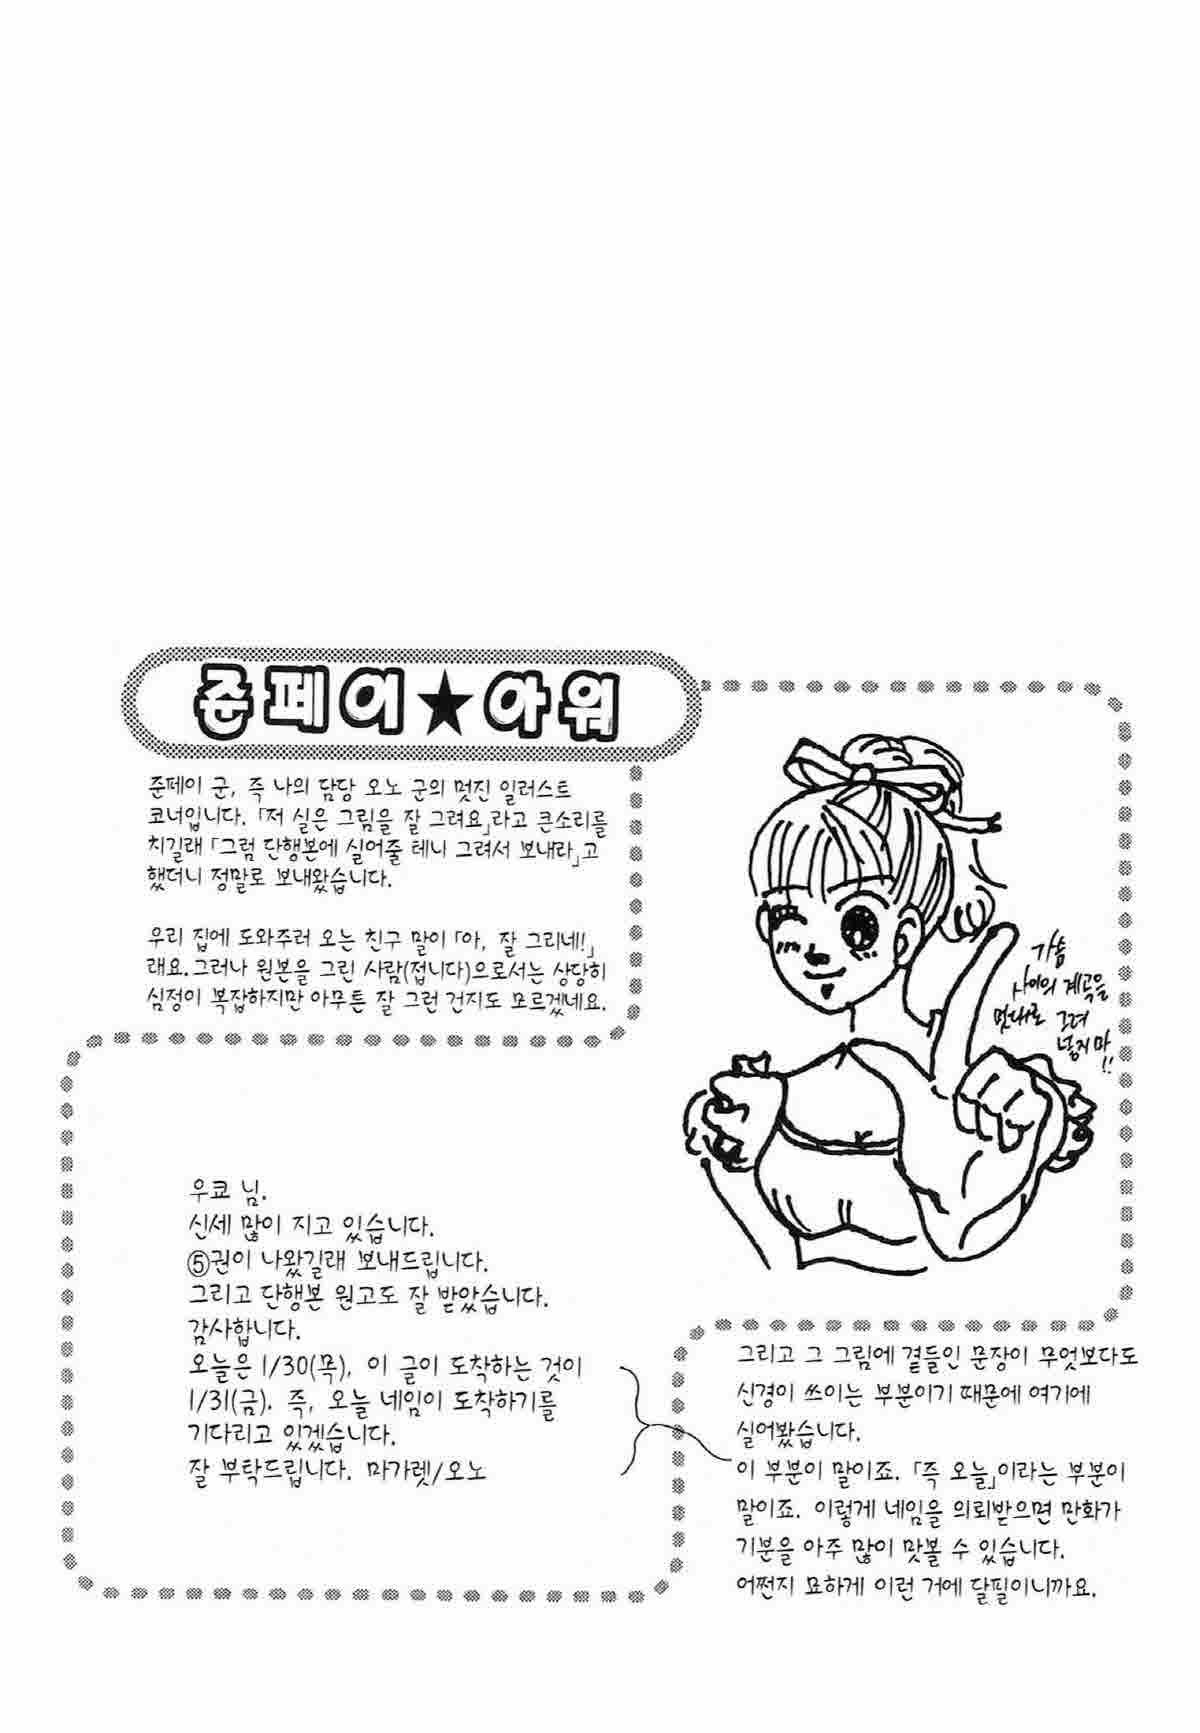 준페이★아워
준페이 군, 즉 나의 담당 오노 군의 멋진 일러스트
코너입니다. 「저 실은 그림을 잘 그려요」라고 큰소리를
치길래 「그럼 단행본에 실어줄 테니 그려서 보내라」고
했더니 정말로 보내왔습니다.
우리 집에 도와주러 오는 친구 말이 「아, 잘 그리네!」
래요. 그러나 원본을 그린 사람(접니다)으로서는 상당히
심정이 복잡하지만 아무튼 잘 그런 건지도 모르겠네요.
가슴
사이의 계곡을
멋대로 그려
넣지 마!!
우쿄 님.
신세 많이 지고 있습니다.
⑤권이 나왔길래 보내드립니다.
그리고 단행본 원고도 잘 받았습니다.
감사합니다.
오늘은 1/30(목), 이 글이 도착하는 것이
1/31(금). 즉, 오늘 네임이 도착하기를
기다리고 있겠습니다.
잘 부탁드립니다. 마가렛/오노
그리고 그 그림에 곁들인 문장이 무엇보다도
신경이 쓰이는 부분이기 때문에 여기에
실어봤습니다.
이 부분이 말이죠. 「즉 오늘」이라는 부분이
말이죠. 이렇게 네임을 의뢰받으면 만화가
기분을 아주 많이 맛볼 수 있습니다.
어쩐지 묘하게 이런 거에 달필이니까요.